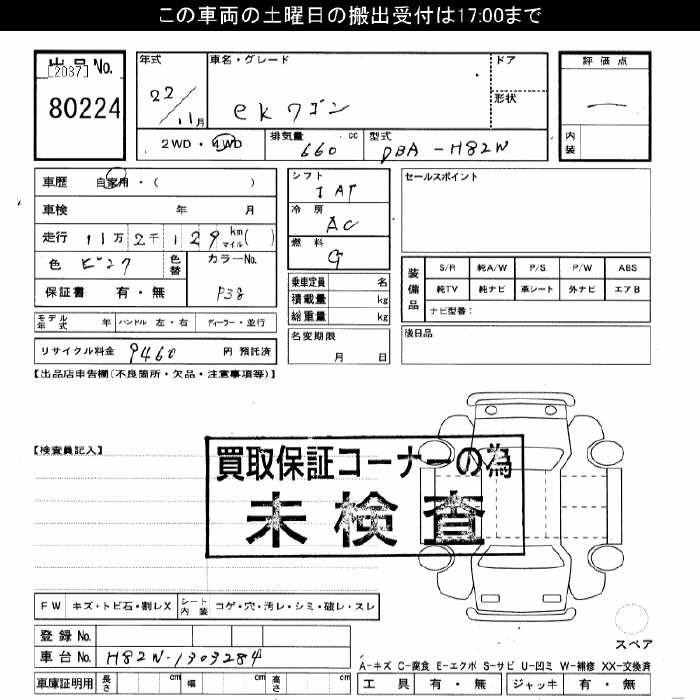 この車両の土曜日の搬出受付は17:00まで
出品No.
[2037]
80224
年式
22/11月
車名・グレード
ekワゴン
ドア
形状
評価点
内装
2WD・4WD
排気量 660 cc
型式 DBA-H82W
車歴 自家用・( )
車検 年 月
走行 11万2千129km マイル( )
色 ピンク
色替
カラーNo.
P38
保証書 有・無
シフト
IAT
冷房
AC
燃料
G
乗車定員 名
積載量 kg
総重量 kg
セールスポイント
装備品
S/R 純A/W P/S P/W ABS
純TV 純ナビ 革シート 外ナビ エアB
ナビ型番:
モデル年式 年 ハンドル 左・右 ディーラー・並行
名変期限
月 日
後日品
リサイクル料金 9460 円 預託済
【出品店申告欄(不良箇所・欠品・注意事項等)】
【検査員記入】
買取保証コーナーの為
未検査
FW キズ・トビ石・割レX シート内装 コゲ・穴・汚レ・シミ・破レ・スレ
スペア
登録No.
車台No. H82W-1303284
A-キズ C-腐食 E-エクボ S-サビ U-凹ミ W-補修 XX-交換済
車庫証明用 長さ cm 幅 cm 高さ cm
工具 有・無 ジャッキ 有・無